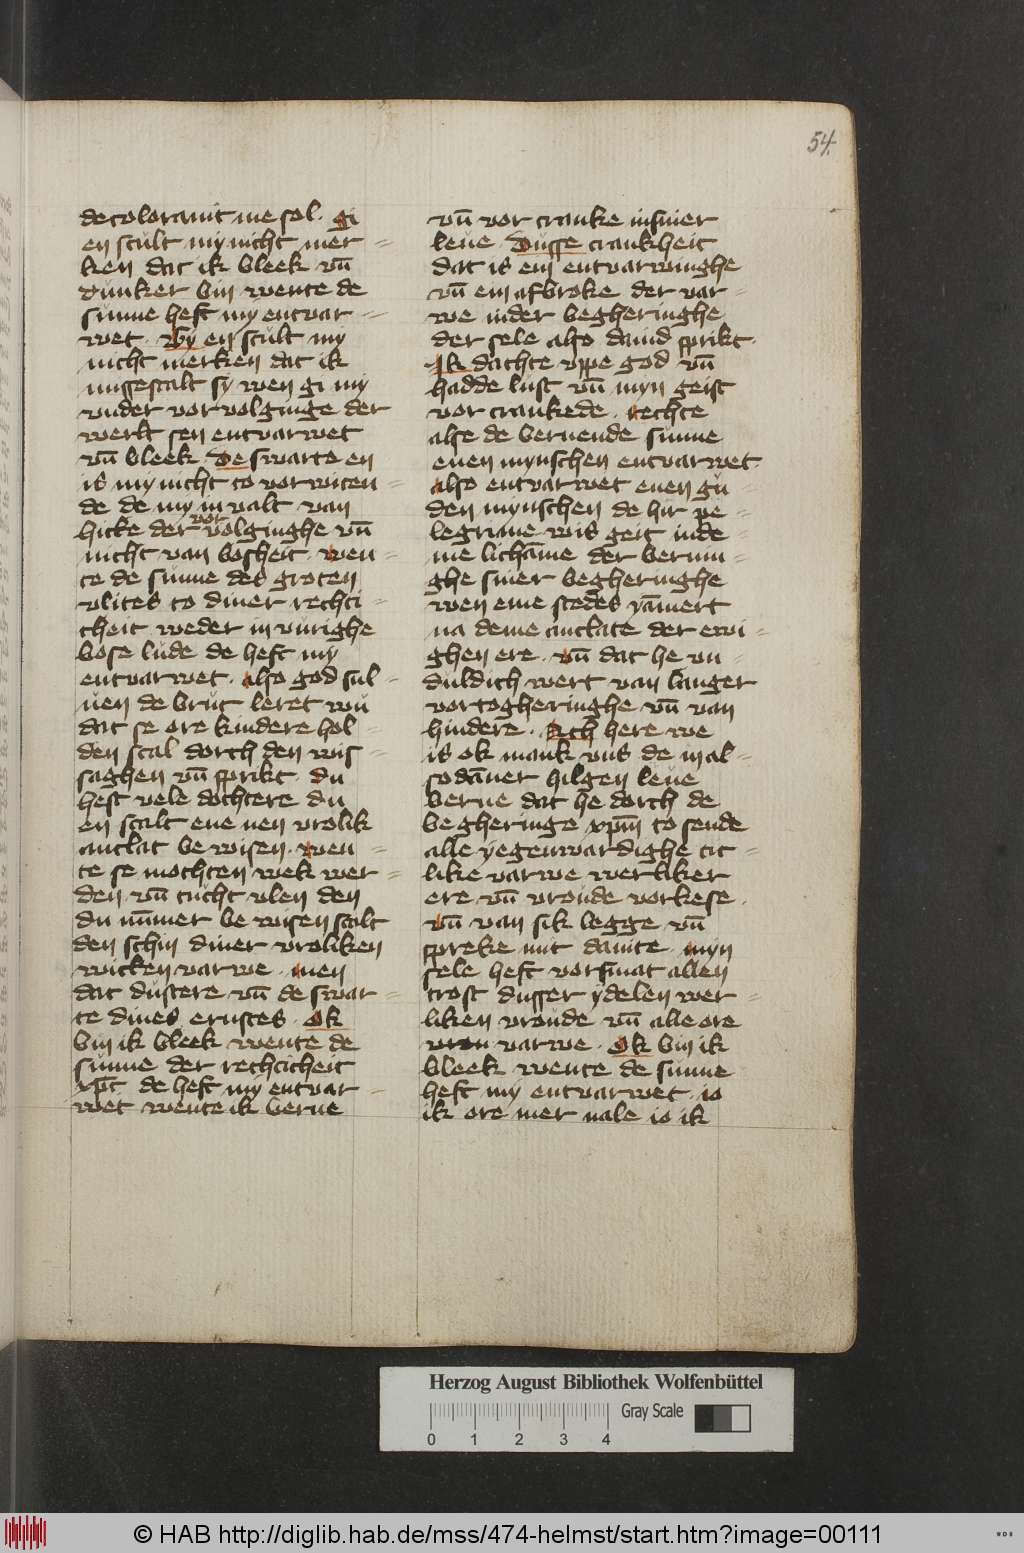 54.
decoloravit me sol. gi
en scult my nicht mer=
ken dat ik bleek vn̄
dunker bin wente de
sunne heft my entvar=
wet. Gy en scult my
nicht merken dat ik
misgestalt sy wen gi my
vnder vorvolginge der
werlt sen entvarwet
vn̄ bleek. De swarte en
is my nicht to vorwiten=
de de my in valt van
hicke der vorvolginghe vn̄
nicht van bosheit. wen=
te de sunne des groten
vlites to diner rechti=
cheit weder in vurighe
bose lude de heft my
entvarwet. also god sul=
uen de brut leret wu
dat se ore kindere hol=
den scal dorch den wis=
saghen vn̄ sprikt. du
hest vele dochtere du
en scalt ene nen vrolik
antlat be wisen. wen=
te se mochten wek wer=
den vn̄ tucht vlen den
du nūmer be wisen scalt
den schin diner vroliken
wicken varwe. men
dat dustere vn̄ de swar=
te dines ernstes. Ok
bin ik bleek wente de
sunne der rechticheit
xp̄c de heft my entvar=
wet wente ik berne
vn̄ vor cranke in siner
leue. Dusse crankheit
dat is ein entvarwinghe
vn̄ ein afbroke der var=
we in der begheringhe
der sele also dauid sprikt.
Ik dachte vppe god vn̄
hadde lust vn̄ myn geist
vor crankede. rechte
alse de bernende sunne
enen mynschen entvarwet.
also entvarwet enen gu=
den mynschen de hir pe=
legrime wis geit in de=
me lichāme der bernin=
ghe siner begheringhe
wen eme stedes yāmert
na deme antlate der ewi=
ghen ere. vn̄ dat he vn=
duldich wert van langer
vortogheringhe vn̄ van
hindere. Ach here we
is ok mank vns de in al=
sodāner hilgen leue
berne dat he dorch de
be gheringe xpm̄ to sende
alle yegenwardighe tit=
like varwe werliker
ere vn̄ vroude vorkese.
vn̄ van sik legge vn̄
spreke mit dauite. myn
sele heft vorsmat allen
trost dusser ydelen wer=
liken vroude vn̄ alle ore
varwe. Ok bin ik
bleek wente de sunne
heft my entvarwet. io
ik ore mer nale io ik
Herzog August Bibliothek Wolfenbüttel
Gray Scale
0 1 2 3 4
© HAB http://diglib.hab.de/mss/474-helmst/start.htm?image=00111